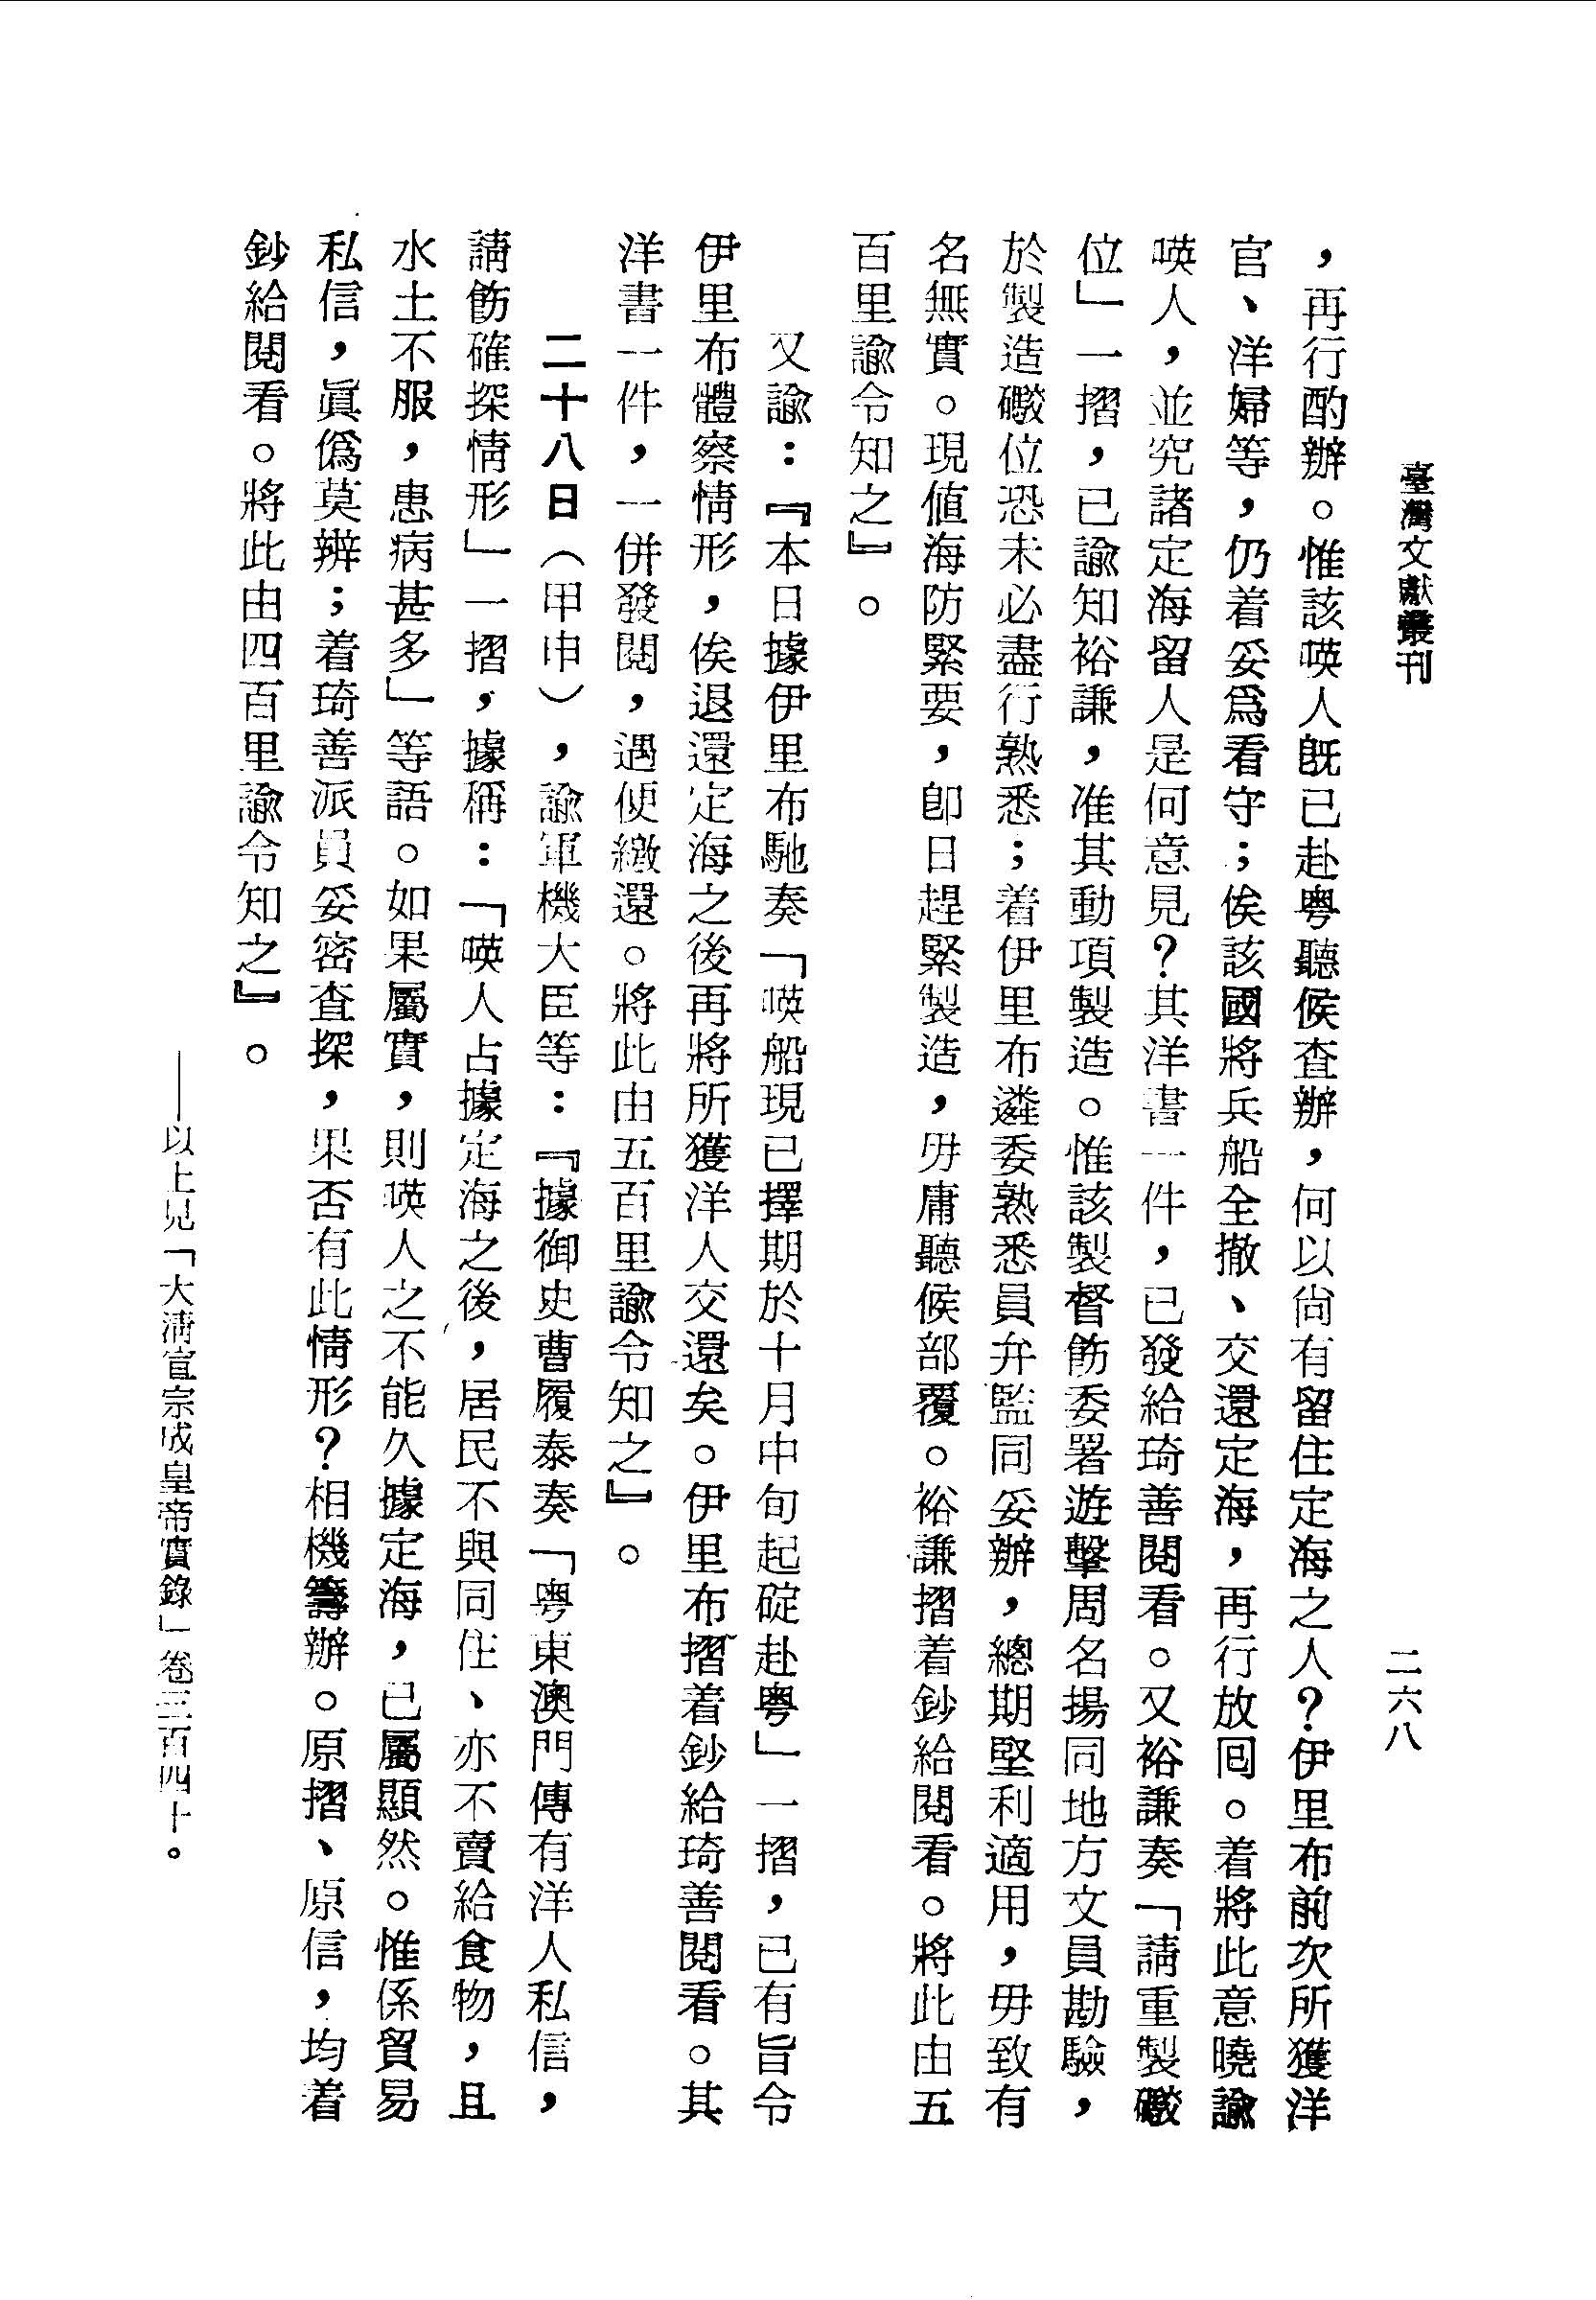 臺灣文獻叢刊
二六八
，再行酌辦。惟該㗸人既已赴粵聽候查辦，何以尚有留住定海之人？伊里布前次所獲洋
官、洋婦等，仍着妥為看守；俟該國將兵船全撤、交還定海，再行放囘。着將此意曉諭
㗸人，並究諸定海留人是何意見？其洋書一件，已發給琦善閱看。又裕謙奏「請重製礮
位」一摺，已諭知裕謙，准其動項製造。惟該製督飭委署遊擊周名揚同地方文員勘驗，
於製造礮位恐未必盡行熟悉；着伊里布遴委熟悉員弁監同妥辦，總期堅利適用，毋致有
名無實。現値海防緊要，卽日趕緊製造，毋庸聽候部覆。裕謙摺着鈔給閱看。將此由五
百里諭令知之』。
又諭：『本日據伊里布馳奏「㗸船現已擇期於十月中旬起碇赴粵」一摺，已有旨令
伊里布體察情形，俟退還定海之後再將所獲洋人交還矣。伊里布摺着鈔給琦善閱看。其
洋書一件，一併發閱，遇便繳還。將此由五百里諭令知之』。
二十八日（甲申），諭軍機大臣等：『據御史曹履泰奏「粵東澳門傳有洋人私信，
請飭確探情形」一摺，據稱：「㗸人占據定海之後，居民不與同住、亦不賣給食物，且
水土不服，患病甚多」等語。如果屬實，則㗸人之不能久據定海，已屬顯然。惟係貿易
私信，眞僞莫辨；着琦善派員妥密查探，果否有此情形？相機籌辦。原摺、原信，均着
鈔給閱看。將此由四百里諭令知之』。
——以上見「大清宣宗成皇帝實錄」卷三百四十。